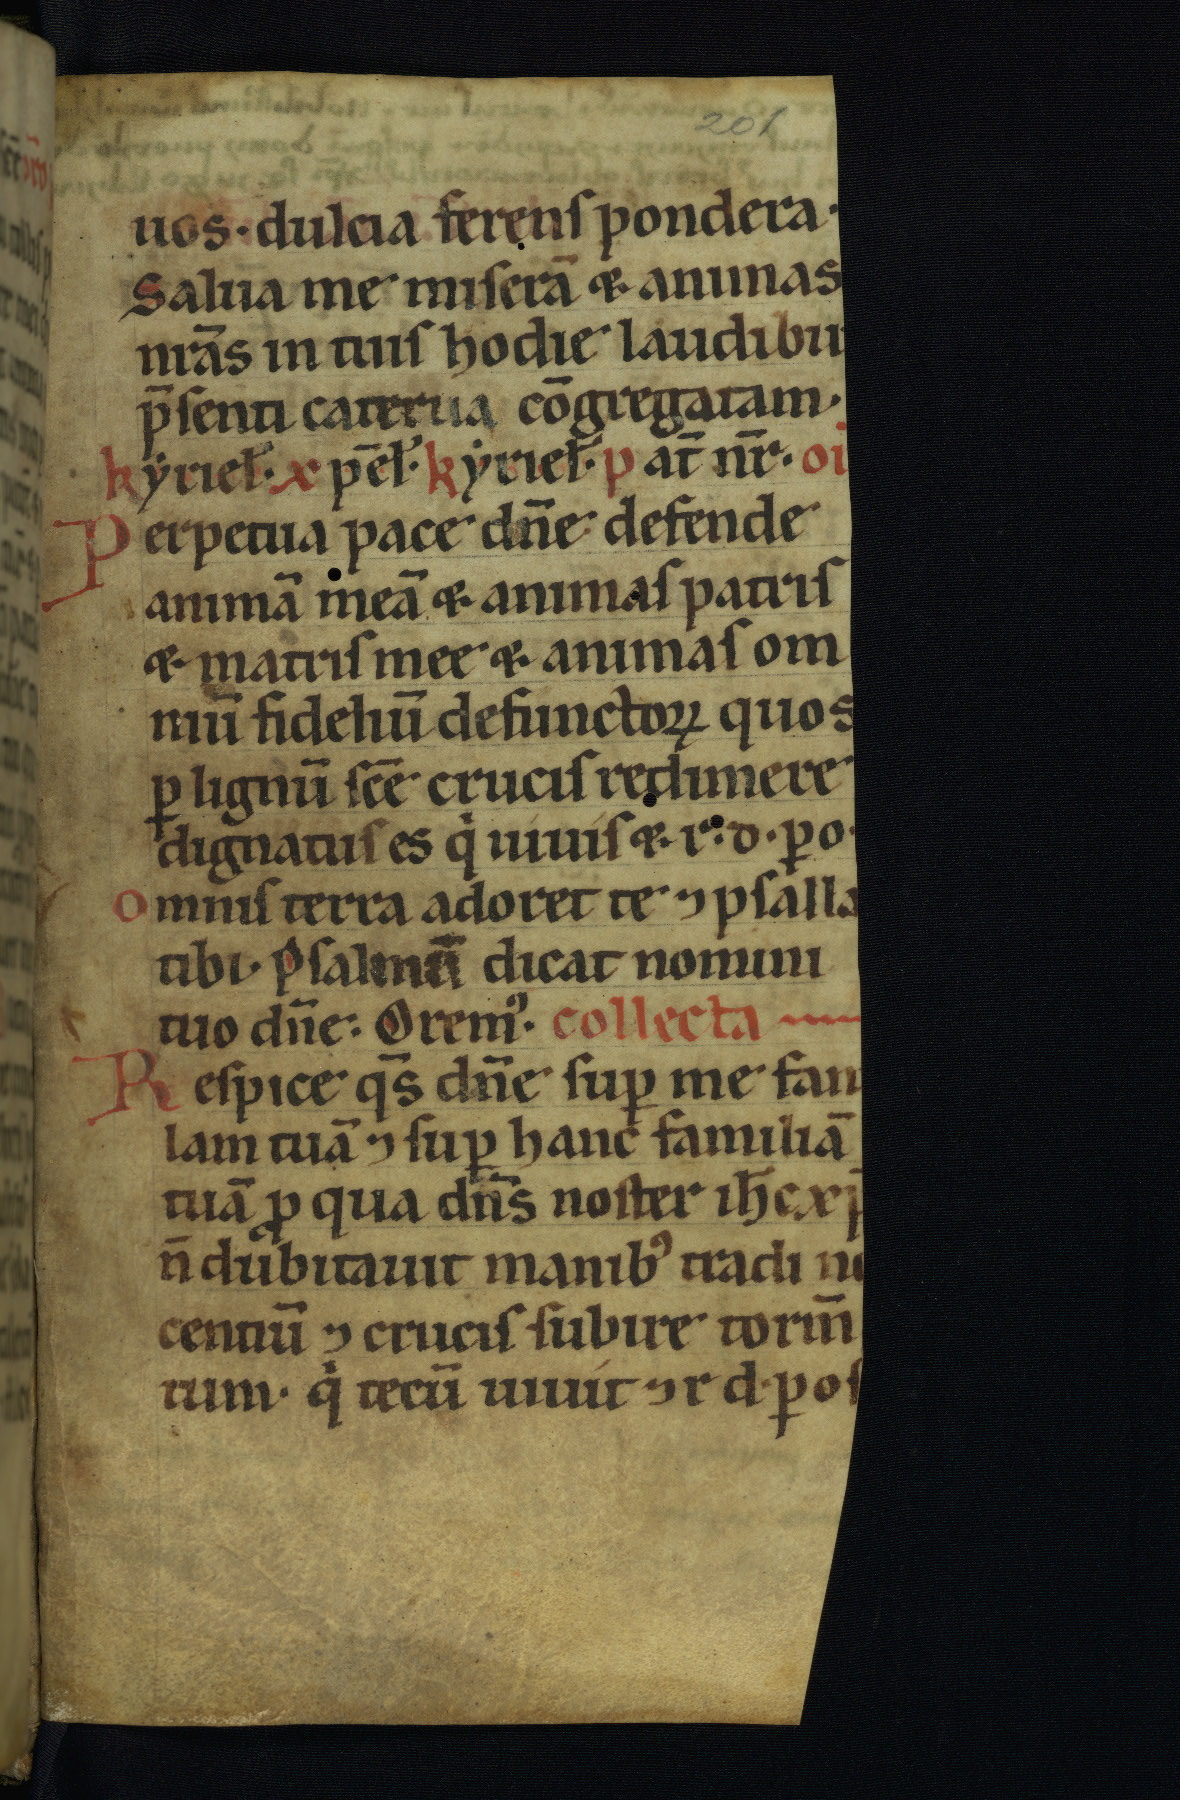 201
uos· dulcia ferens pondera·
Salua me miserā & animas
nr̄as in tuis hodie laudibu
p̄senti caterua cōgregatam·
kyriel̄· xpēl̄· kyriel̄· pat̄ nr̄· oi
Perpetua pace dn̄e defende
animā meā & animas patris
& matris mee & animas om
niū fidéliū defunctoꝝ quos
ꝑ lignū sc̄e crucis redimere
dignatus es q̇ uiuis & r· d· ꝑ o·
Omnis terra adoret te ⁊ psalla
tibi· Psalmū dicat nomini
tuo dn̄e· Oremꝰ· collecta
Respice qs̄ dn̄e suꝑ me fam
lam tuā ⁊ suꝑ hanc familiā
tuā ꝓ qua dn̄s noster ih̄c xp̄
n̄ dubitauit manibꝰ tradi no
centiū ⁊ crucis subire torm̄
tum· q̇ tecū uiuit ⁊ r d· ꝑ os